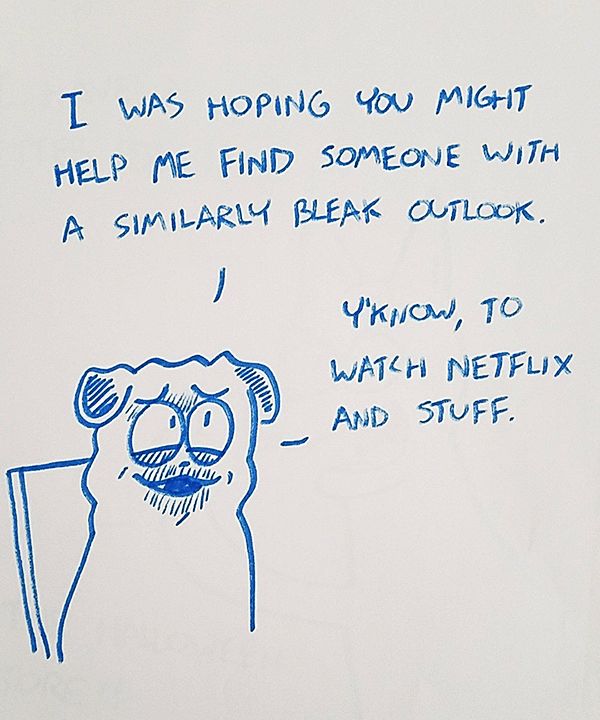 I WAS HOPING YOU MIGHT
HELP ME FIND SOMEONE WITH
A SIMILARLY BLEAK OUTLOOK.
Y'KNOW, TO
WATCH NETFLIX
AND STUFF.